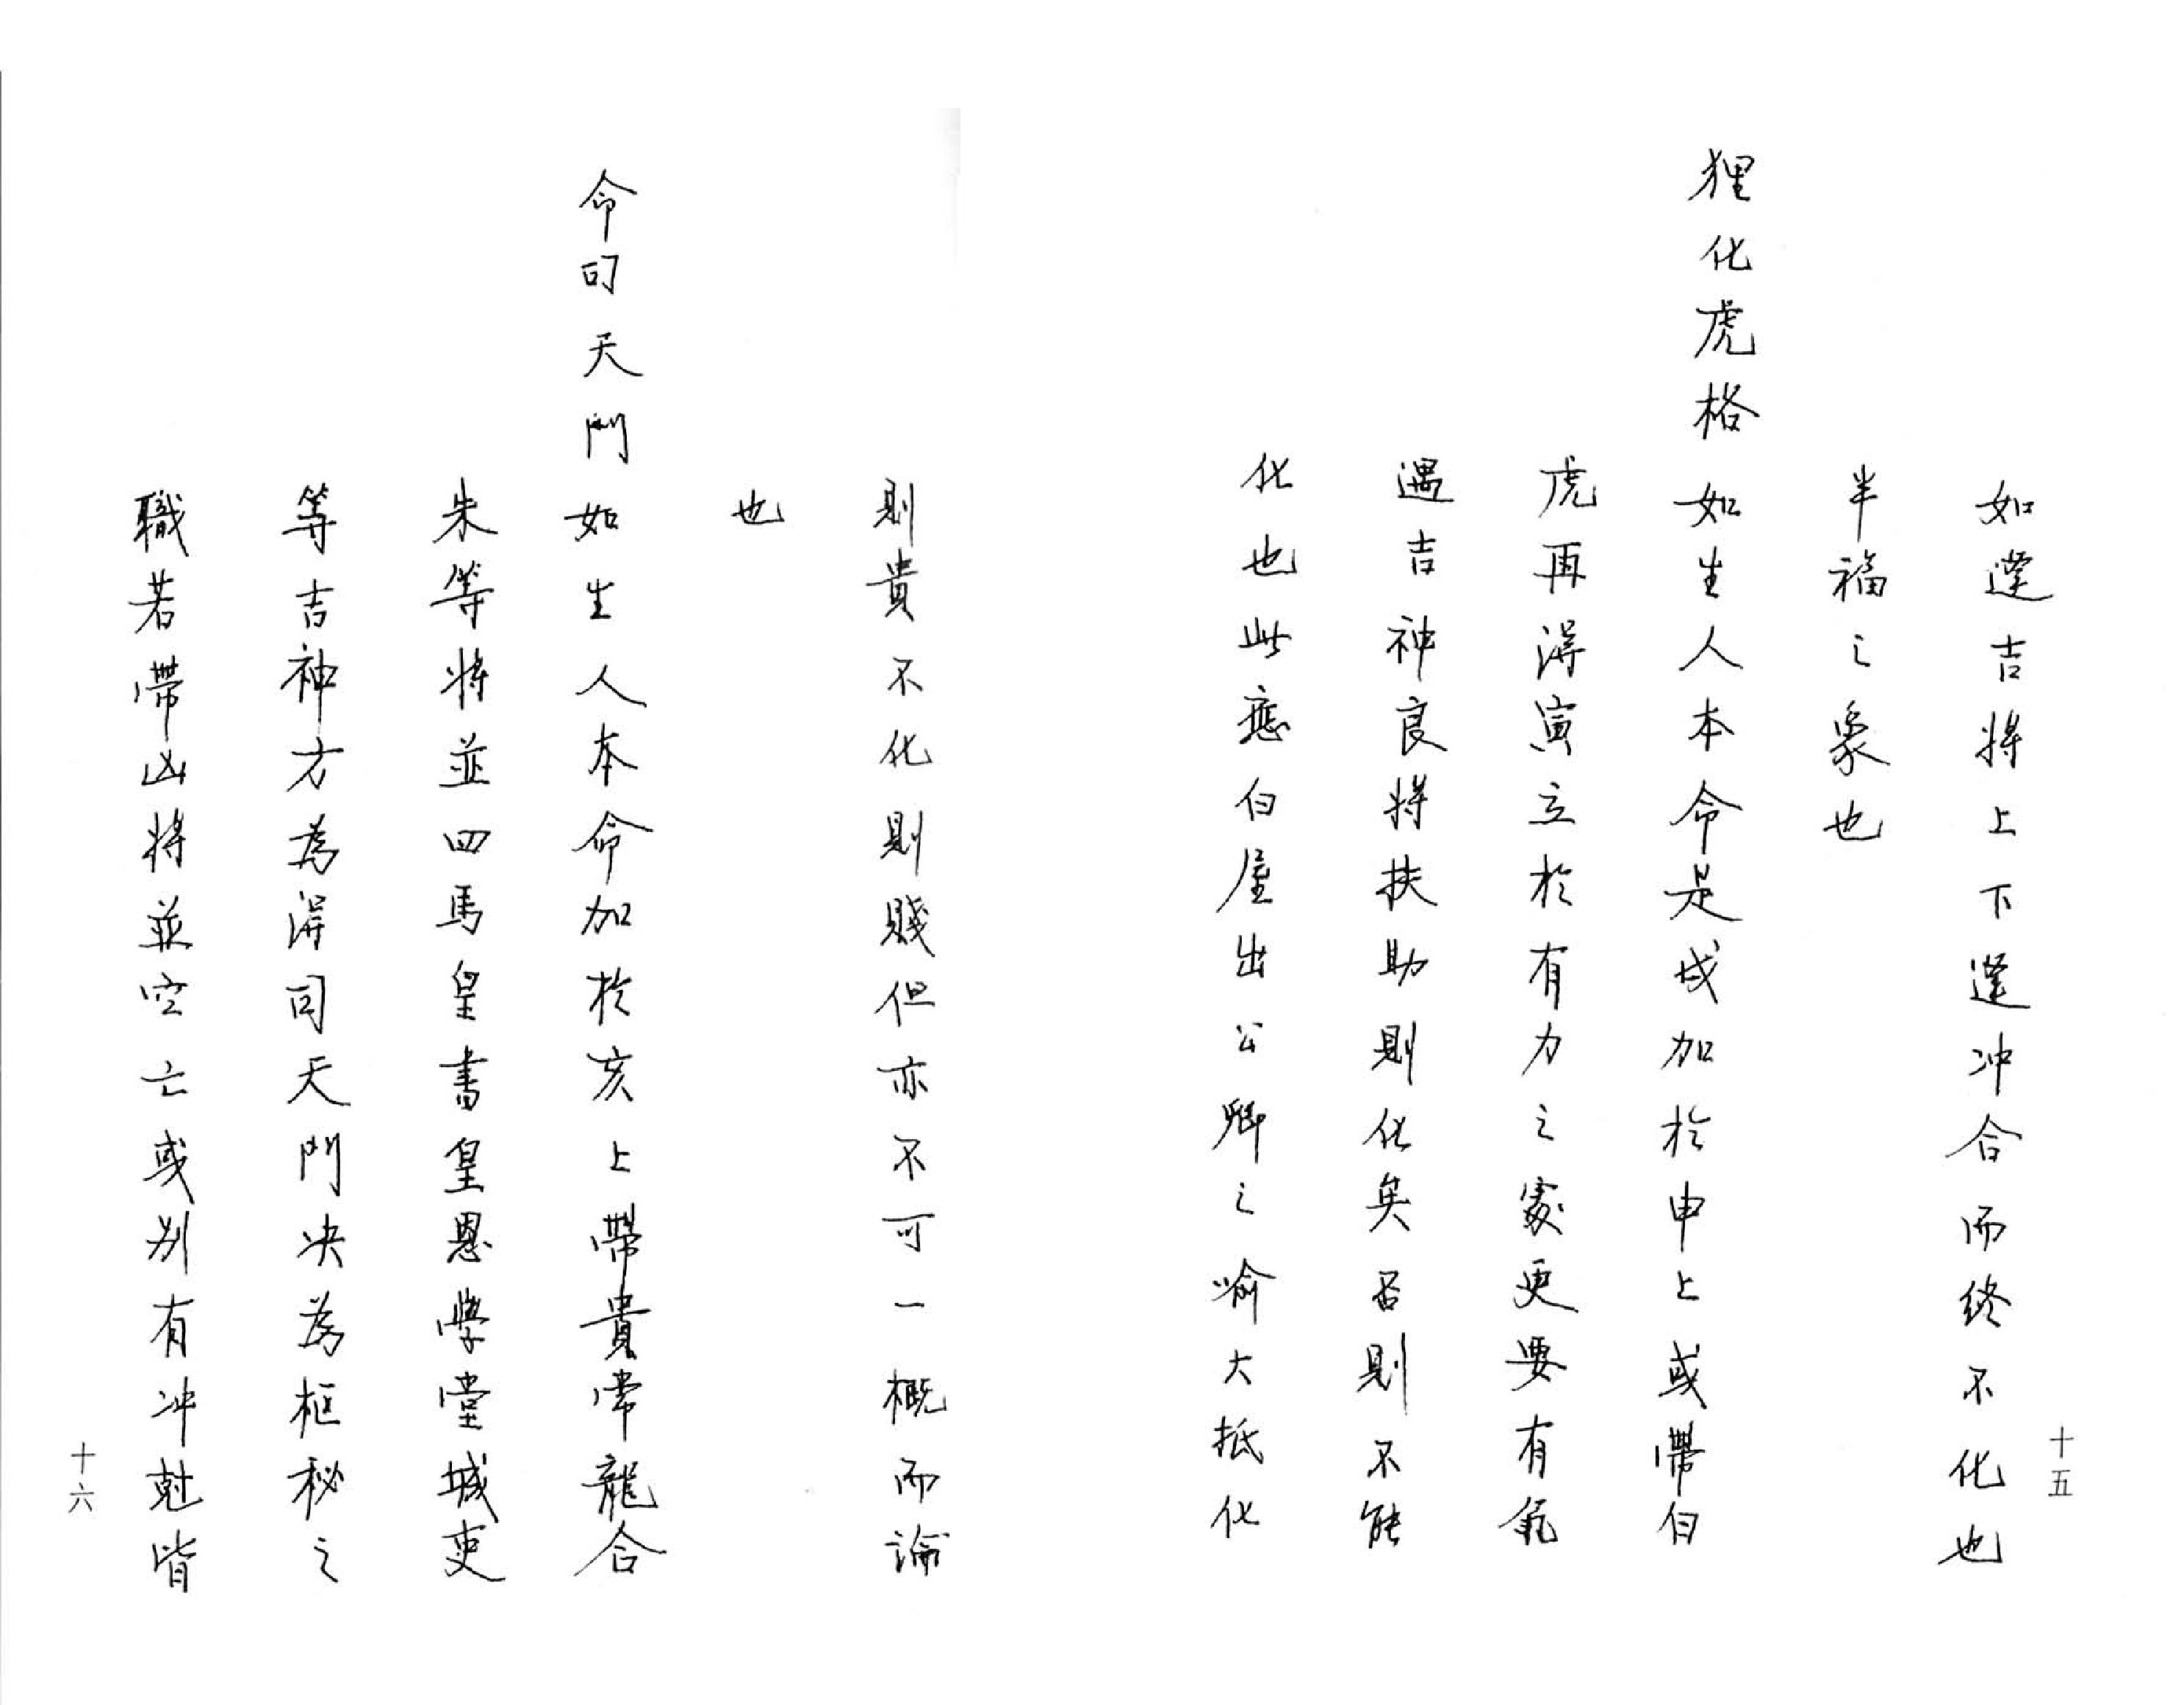 如逢吉將上下逢冲合而終不化也
半福之象也
狸化虎格如生人本命是戌加於申上或帶白
虎再得寅立於有力之家更要有氣
遇吉神良將扶助則化矣否則不能
化也此應白屋出公卿之喻大抵化
十五
則貴不化則賤但亦不可一概而論
也
命司天門如生人本命加於亥上帶貴常龍合
朱等將並四馬皇書皇恩學堂城吏
等吉神方為得司天門决為枢秘之
職若帶凶將並空亡或别有冲尅皆
十六